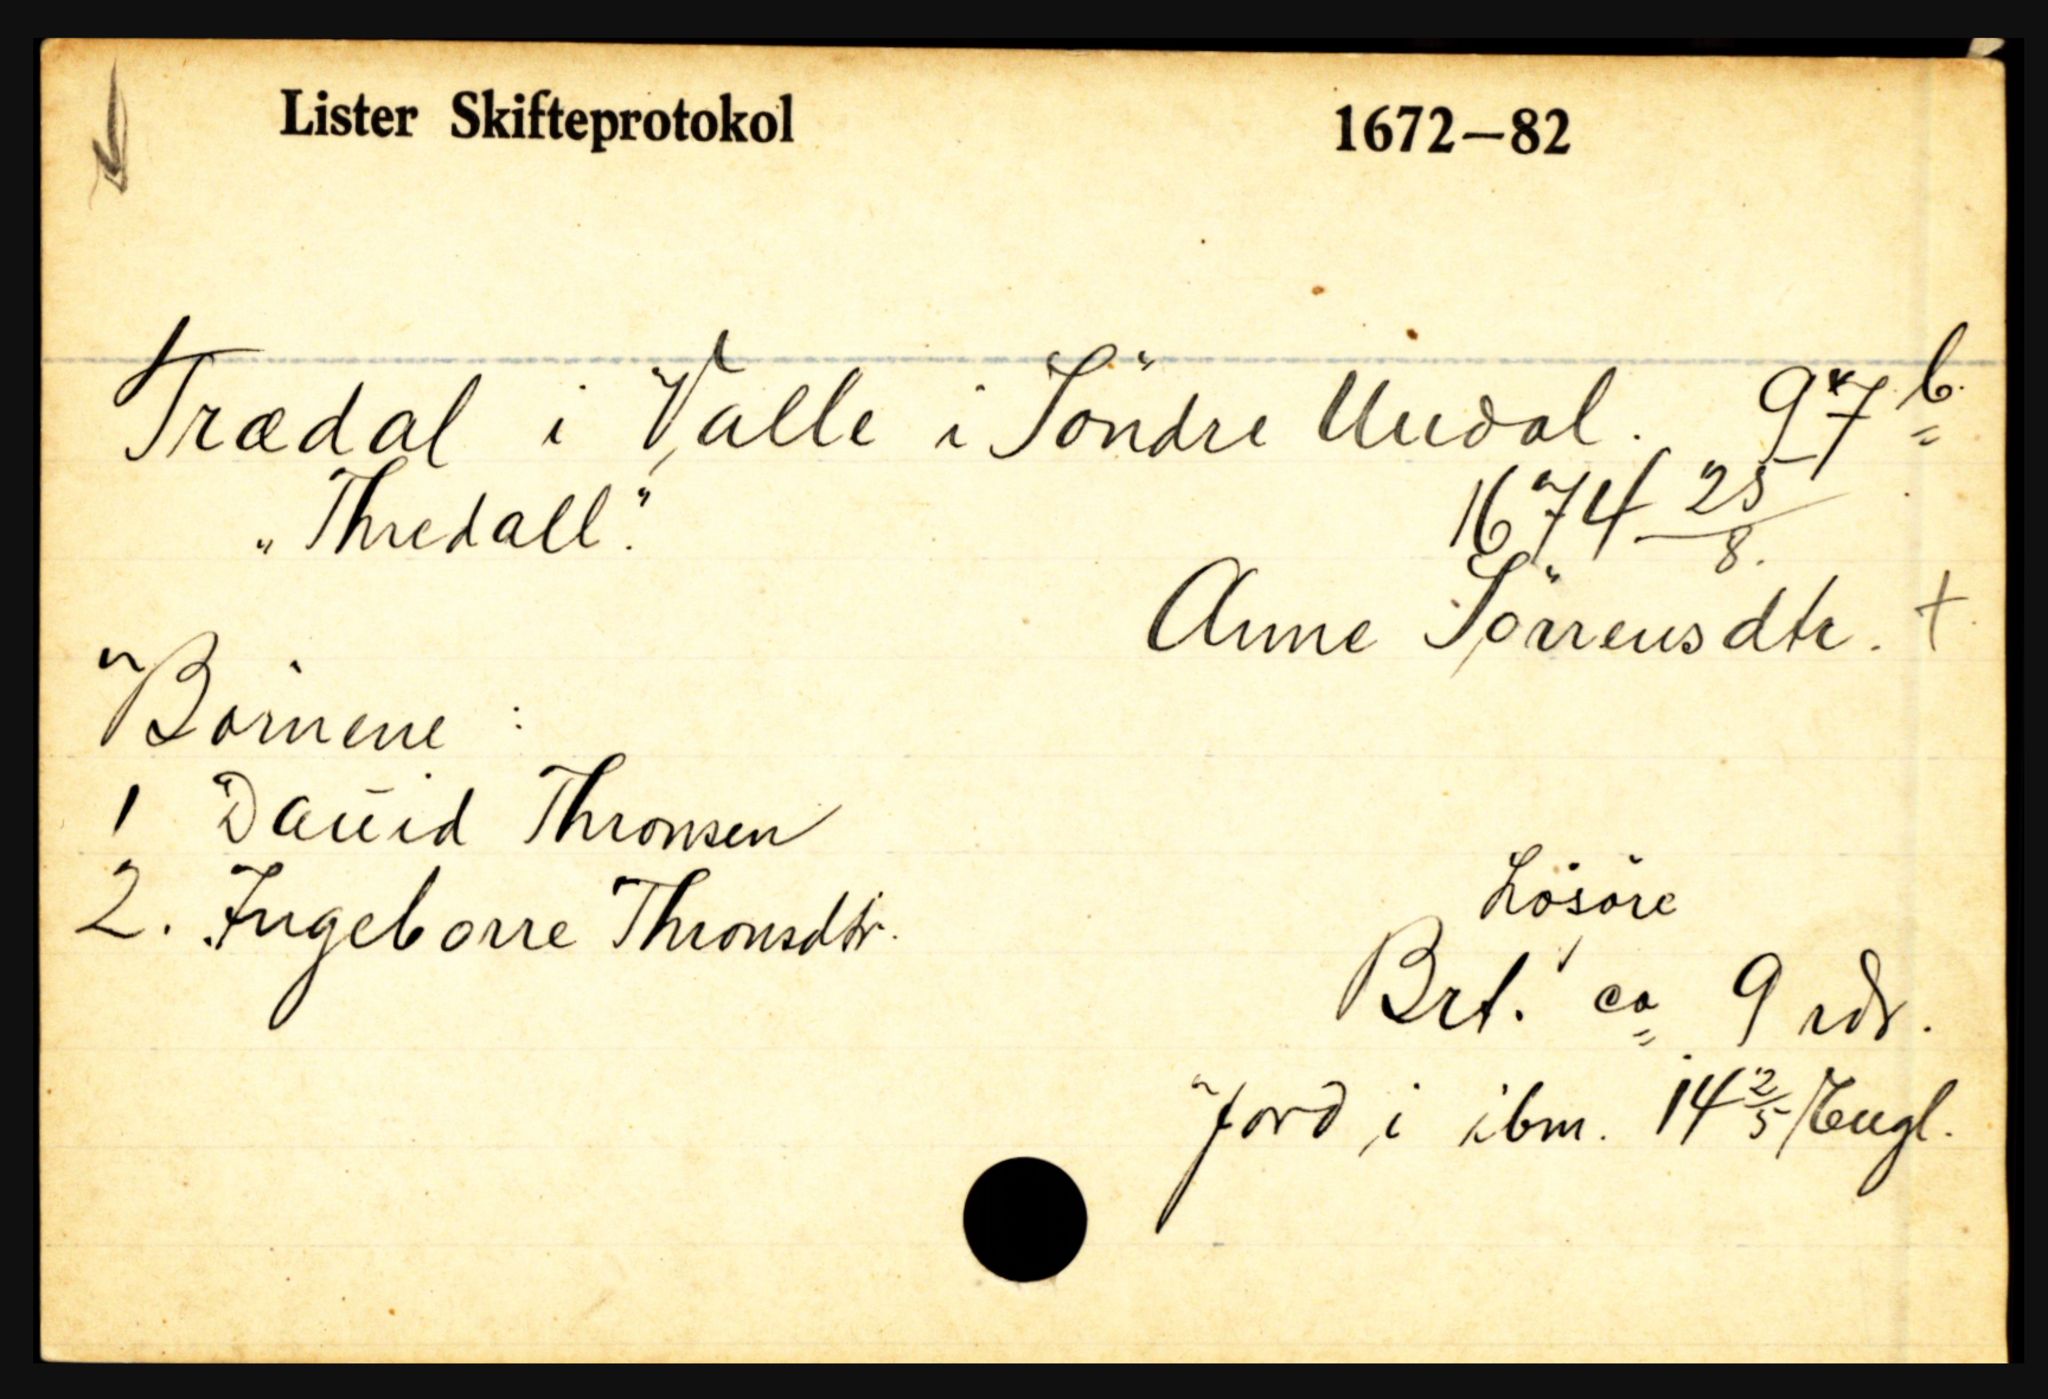 Lister Skifteprotokol 1672–82
Trædal i Valle i Söndre Undal. 97 b.
„Thredall". 1674 25/8.
Anne Sörrensdtr. †
Börnene :
1 Dauid Thronsen
2. Ingeborre Thronsdtr.
Lösöre
Brt. ca 9 rdr.
Jord i ibm. 14 2/5 /Eugl.